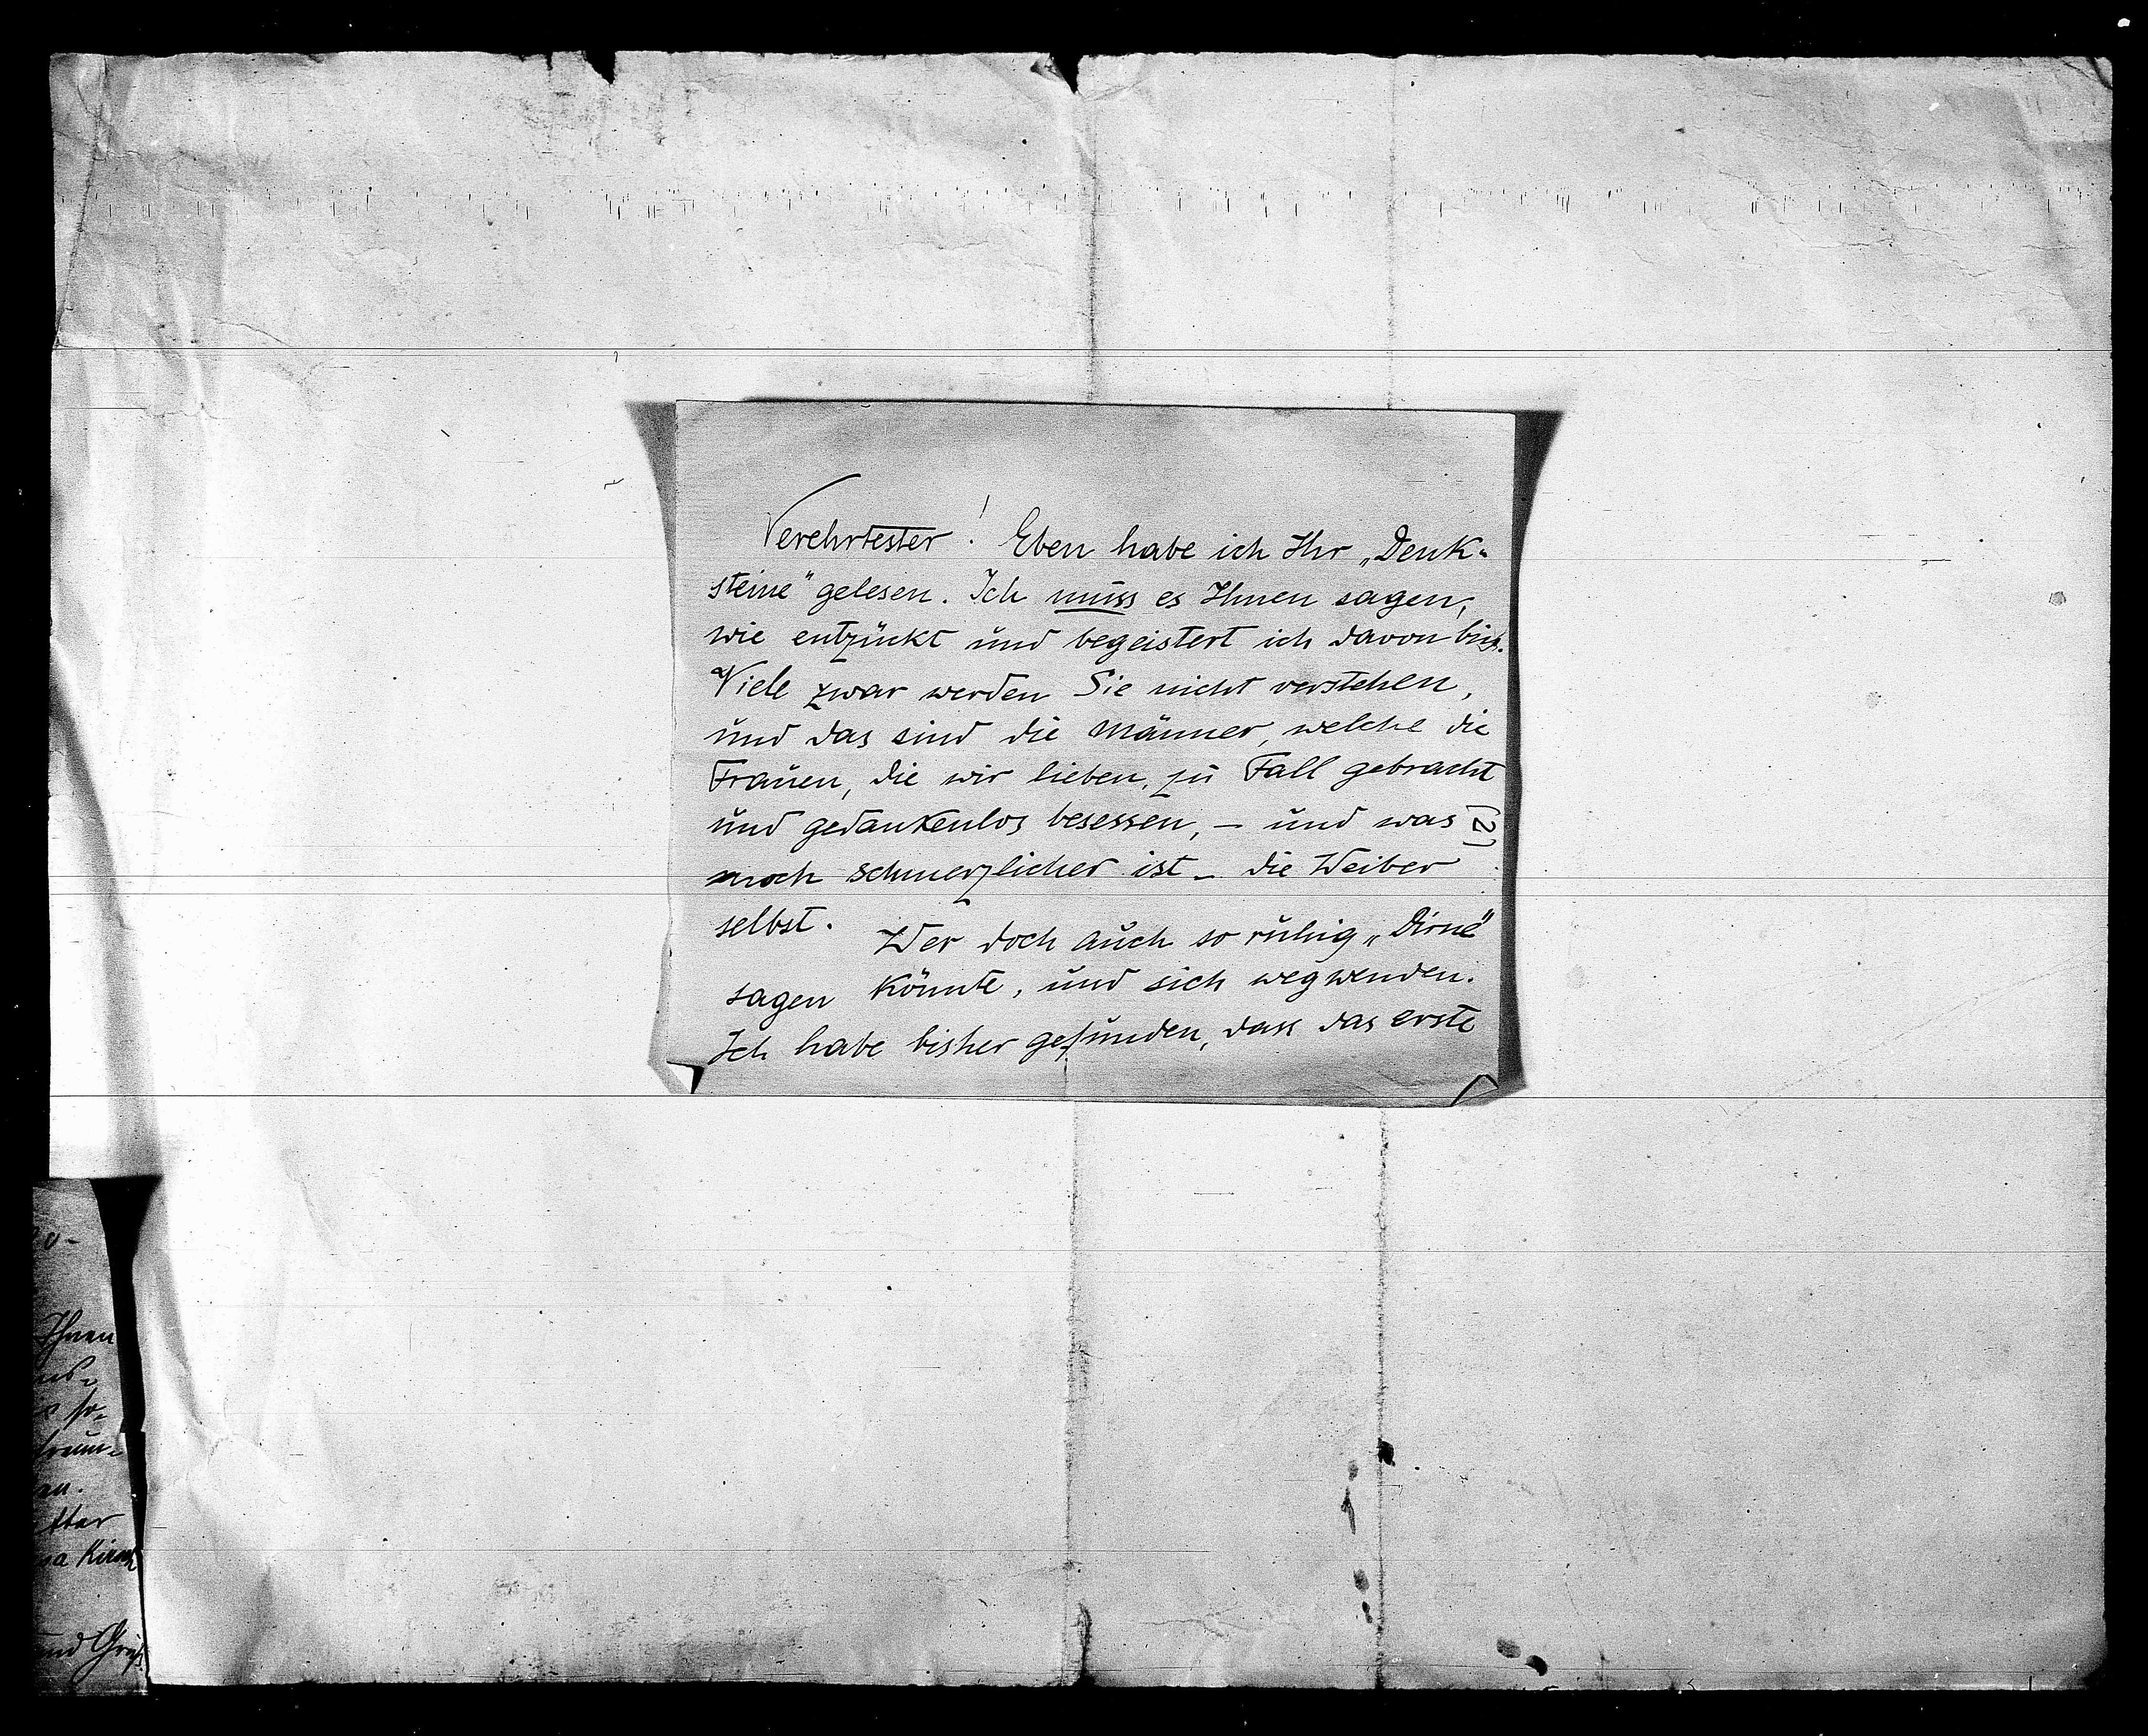 Verehrtester! Eben habe ich Ihr „Denk-
steine" gelesen. Ich muss es Ihnen sagen,
wie entzückt und begeistert ich davon bin.
Viele zwar werden Sie nicht verstehen,
und das sind die Männer, welche die
Frauen, die wir lieben, zu Fall gebracht
und gedankenlos besessen, – und was
noch schmerzlicher ist – die Weiber
selbst. Wer doch auch so ruhig „Dirne"
sagen könnte, und sich wegwenden.
Ich habe bisher gefunden, dass das erste
(2)
Ihnen
und Gruß